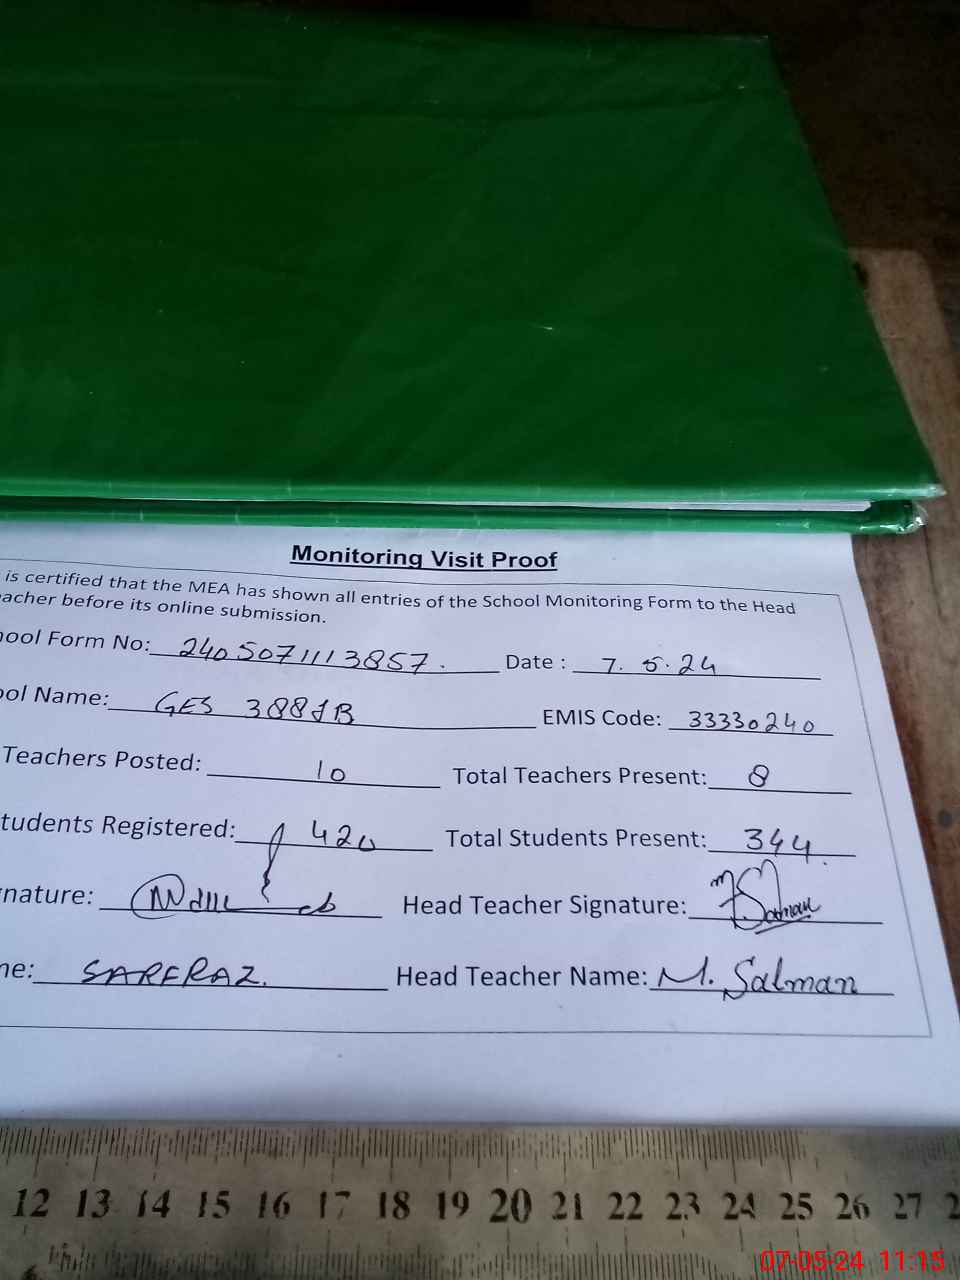 Monitoring Visit Proof
is certified that the MEA has shown all entries of the School Monitoring Form to the Head
acher before its online submission.
hool Form No: 2405071113857. Date : 7.5.24
ool Name: GES 388JB EMIS Code: 33330240
Teachers Posted: 10 Total Teachers Present: 8
tudents Registered: 420 Total Students Present: 344
nature: Head Teacher Signature: M Salman
me: SARFRAZ. Head Teacher Name: M. Salman
12 13 14 15 16 17 18 19 20 21 22 23 24 25 26 27 2
07-05-24 11:15